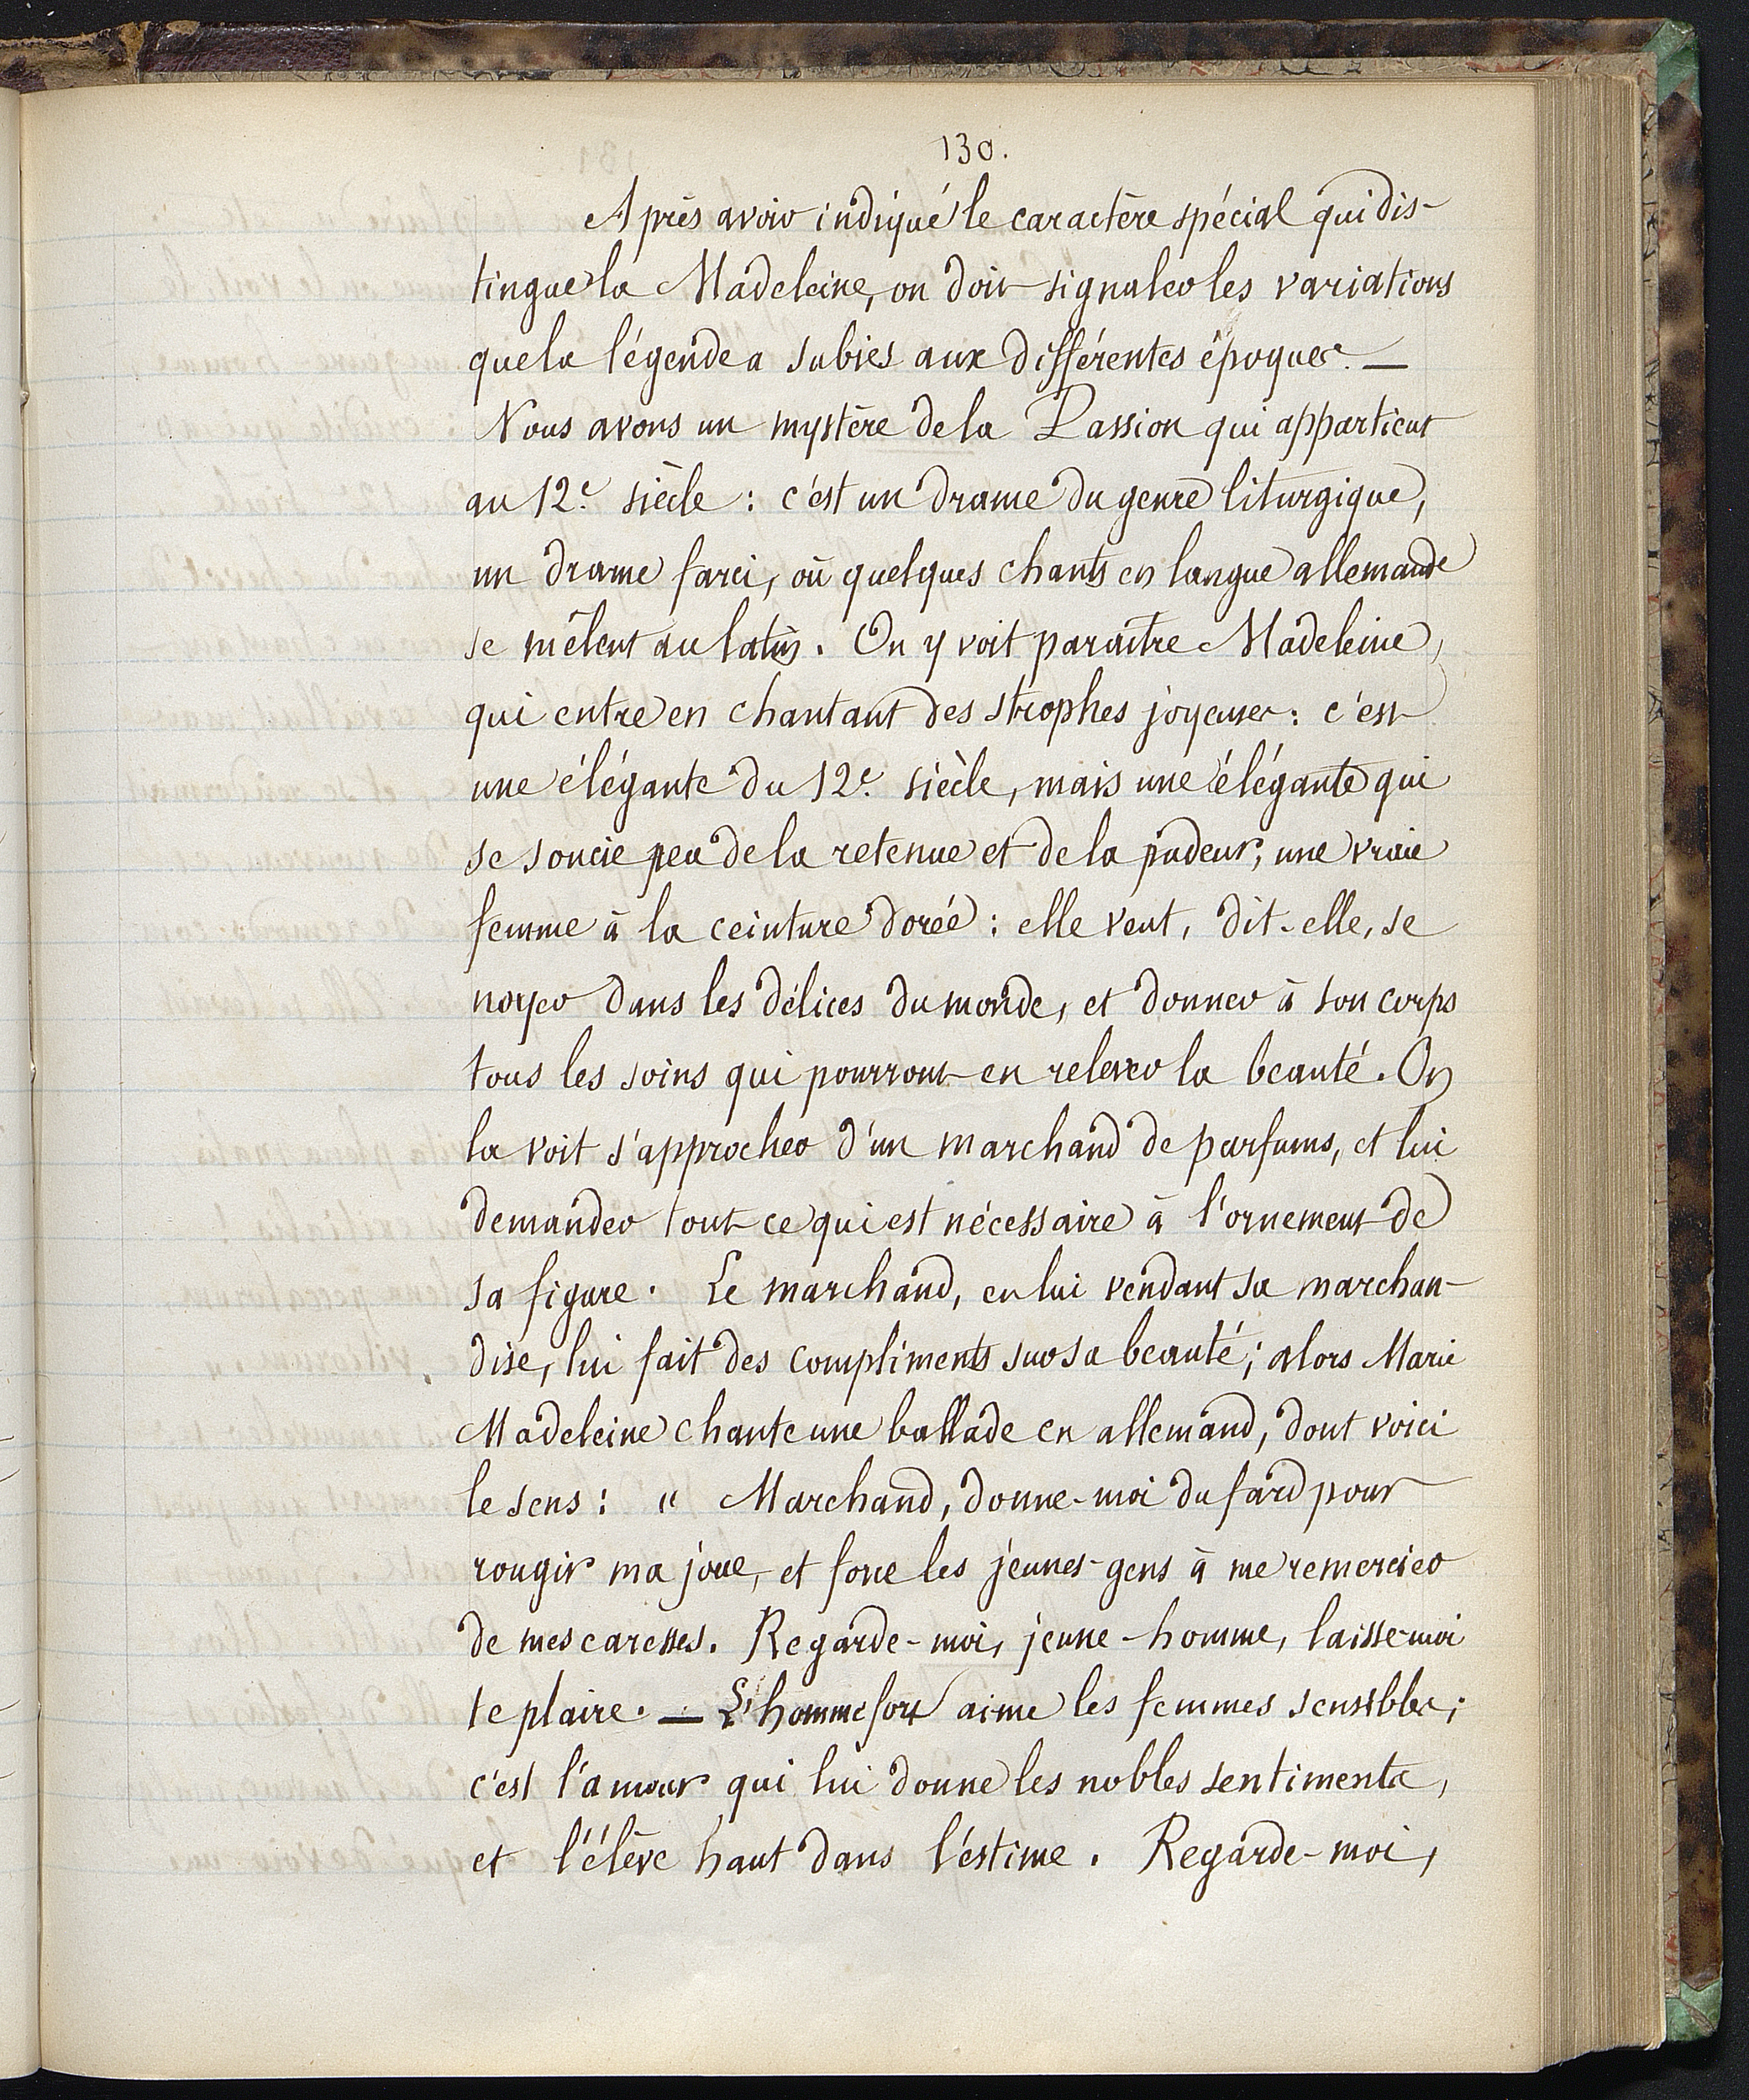 130.
Après avoir indiqué le caractère spécial qui dis-
tingue la Madeleine, on doit signaler les variations
que la légende a subies aux différentes époques. —
Nous avons un mystère de la Passion qui appartient
au 12e siècle : c'est un drame du genre liturgique,
un drame farci, où quelques chants en langue allemande
se mêlent au latin. On y voit paraître Madeleine,
qui entre en chantant des strophes joyeuses : c'est
une élégante du 12e siècle, mais une élégante qui
se soucie peu de la retenue et de la pudeur, une vraie
femme à la ceinture dorée : elle veut, dit-elle, se
noyer dans les délices du monde, et donner à son corps
tous les soins qui pourront en relever la beauté. On
la voit s'approcher d'un marchand de parfums, et lui
demander tout ce qui est nécessaire à l'ornement de
sa figure. Le marchand, en lui vendant sa marchan-
dise, lui fait des compliments sur sa beauté ; alors Marie
Madeleine chante une ballade en allemand, dont voici
le sens : " Marchand, donne-moi du fard pour
rougir ma joue, et force les jeunes-gens à me remercier
de mes caresses. Regarde-moi, jeune-homme, laisse-moi
te plaire. — L'homme fort aime les femmes sensibles ;
c'est l'amour qui lui donne les nobles sentiments,
et l'élève haut dans l'estime. Regarde-moi,